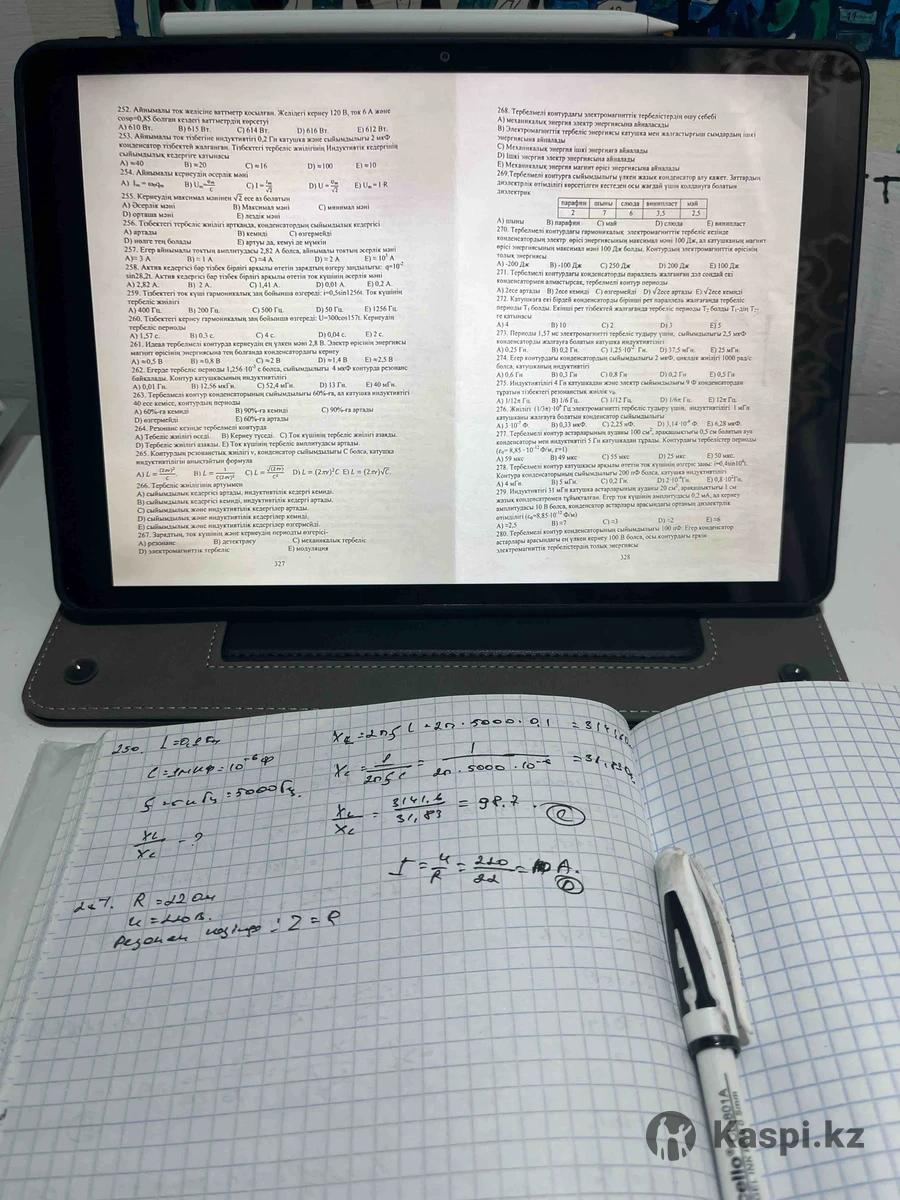 252. Айнымалы ток желісіне ваттметр қосылған. Желідегі кернеу 120 В, ток 6 А және
cosφ=0,85 болған кездегі ваттметрдің көрсетуі
A) 610 Вт. B) 615 Вт. C) 614 Вт. D) 616 Вт. E) 612 Вт.
253. Айнымалы ток тізбегіне индуктивтігі 0,2 Гн катушка және сыйымдылығы 2 мкФ
конденсатор тізбектей жалғанған. Тізбектегі тербеліс жиілігінің Индуктивтік кедергінің
сыйымдылық кедергіге қатынасы
A) ≈40 B) ≈20 C) ≈16 D) ≈100 E) ≈10
254. Айнымалы кернеудің әсерлік мәні
255. Кернеудің максимал мәнінен √2 есе аз болатын
A) Әсерлік мәні B) Максимал мәні C) минимал мәні
D) орташа мәні E) лездік мәні
256. Тізбектегі тербеліс жиілігі артқанда, конденсатордың сыйымдылық кедергісі
A) артады B) кемиді C) өзгермейді
D) нөлге тең болады E) артуы да, кемуі де мүмкін
257. Егер айнымалы токтың амплитудасы 2,82 А болса, айнымалы токтың әсерлік мәні
A)≈ 3 А B) ≈ 1 А C) ≈4 А D) ≈ 2 А E) ≈ 10³ А
258. Актив кедергісі бар тізбек бірлігі арқылы өтетін зарядтың өзгеру заңдылығы: q=10⁻²
sin28,2t. Актив кедергісі бар тізбек бірлігі арқылы өтетін ток күшінің әсерлік мәні
A) 2,82 А. B) 2 А. C) 1,41 А. D) 0,01 А. E) 0,2 А.
259. Тізбектегі ток күші гармоникалық заң бойынша өзгереді: i=0,5sin1256t. Ток күшінің
тербеліс жиілігі
A) 400 Гц. B) 200 Гц. C) 500 Гц. D) 50 Гц. E) 1256 Гц.
260. Тізбектегі кернеу гармоникалық заң бойынша өзгереді: U=300cos157t. Кернеудің
тербеліс периоды
A) 1,57 с. B) 0,3 с. C) 4 с. D) 0,04 с. E) 2 с.
261. Идеал тербелмелі контурда кернеудің ең үлкен мәні 2,8 В. Электр өрісінің энергиясы
магнит өрісінің энергиясына тең болғанда конденсатордағы кернеу
A) ≈0,5 В B) ≈0,8 В C) ≈2 В D) ≈1,4 В E) ≈2,5 В
байқалады. Контур катушкасының индуктивтілігі
A) 0,01 Гн. B) 12,56 мГн. C) 52,4 мГн. D) 13 Гн. E) 40 мГн.
263. Тербелмелі контур конденсаторының сыйымдылығы 60%-ға, ал катушка индуктивтігі
40 есе кеміссе, контурдың периоды
A) 60%-ға кемиді B) 90%-ға кемиді C) 90%-ға артады
D) өзгермейді E) 60%-ға артады
264. Резонанс кезінде тербелмелі контурда
A) Тебеліс жиілігі өседі. B) Кернеу түседі. C) Ток күшінің тербеліс жиілігі азаяды.
D) Тербеліс жиілігі азаяды. E) Ток күшінің тербеліс амплитудасы артады.
265. Контурдың резонанстық жиілігі ν, конденсатор сыйымдылығы С болса, катушка
индуктивтілігін анықтайтын формула
266. Тербеліс жиілігінің артуымен
A) сыйымдылық кедергісі артады, индуктивтілік кедергі кемиді.
B) сыйымдылық кедергісі кемиді, индуктивтілік кедергісі артады.
C) сыйымдылық және индуктивтілік кедергілер артады.
D) сыйымдылық және индуктивтілік кедергілер кемиді.
E) сыйымдылық және индуктивтілік кедергілер өзгермейді.
267. Зарядтың, ток күшінің және кернеудің периодты өзгерісі-
A) резонанс B) детектрлеу C) механикалық тербеліс
D) электромагниттік тербеліс E) модуляция
327
268. Тербелмелі контурдағы электромагниттік тербелістердің өшу себебі
A) механикалық энергия электр энергиясына айналасады
B) Электромагниттік тербеліс энергиясы катушка мен жалғастырғыш сымдардың ішкі
энергиясына айналады
C) Механикалық энергия ішкі энергияға айналады
D) Ішкі энергия электр энергиясына айналады
E) Механикалық энергия магнит өрісі энергиясына айналады
269.Тербелмелі контурға сыйымдылығы үлкен жазық конденсатор алу қажет. Заттардың
диэлектрлік өтімділігі көрсетілген кестеден осы жағдай үшін қолдануға болатын
диэлектрик
парафин шыны слюда винипласт май
2 7 6 3,5 2,5
A) шыны B) парафин C) май D) слюда E) винипласт
270. Тербелмелі контурдағы гармоникалық электромагниттік тербеліс кезінде
конденсатордың электр өрісі энергиясының максимал мәні 100 Дж, ал катушканың магнит
өрісі энергиясының максимал мәні 100 Дж болды. Контурдың электромагниттік өрісінің
толық энергиясы
A) -200 Дж B) -100 Дж C) 250 Дж D) 200 Дж E) 100 Дж
271. Тербелмелі контурдағы конденсаторды параллель жалғанған дәл сондай екі
конденсатормен алмастырсақ, тербелмелі контур периоды
A) 2есе артады B) 2есе кемиді C) өзгермейді D) √2есе артады E) √2есе кемиді
272. Катушкаға екі бірдей конденсаторды бірінші рет параллель жалғағанда тербеліс
A) 4 B) 10 C) 2 D) 3 E) 5
273. Периоды 1,57 мс электромагнитті тербеліс тудыру үшін, сыйымдылығы 2,5 мкФ
конденсаторды жалғауға болатын катушка индуктивтілігі
A) 0,25 Гн. B) 0,2 Гн. C) 1,25·10⁻² Гн. D) 37,5 мГн. E) 25 мГн.
274. Егер контурдағы конденсатордың сыйымдылығы 2 мкФ, циклдік жиілігі 1000 рад/с
болса, катушканың индуктивтігі
A) 0,6 Гн B) 0,3 Гн C) 0,8 Гн D) 0,2 Гн E) 0,5 Гн
275. Индуктивтілігі 4 Гн катушкадан және электр сыйымдылығы 9 Ф конденсатордан
тұратын тізбектегі резонанстық жиілік ν₀
A) 1/12π Гц. B) 1/6 Гц. C) 1/12 Гц. D) 1/6π Гц. E) 12π Гц.
катушканы жалғауға болатын конденсатор сыйымдылығы
277. Тербелмелі контур астарларының ауданы 100 см², арақашықтығы 0,5 см болатын ауа
конденсаторы мен индуктивтігі 5 Гн катушкадан тұрады. Контурдағы тербелістер периоды
(ε₀= 8,85 · 10⁻¹² Ф/м, ε=1)
A) 59 мкс B) 49 мкс C) 55 мкс D) 25 мкс E) 50 мкс.
Контура конденсаторының сыйымдылығы 200 пФ болса, катушка индуктивтілігі
279. Индуктивтігі 31 мГн катушка астарларының ауданы 20 см², арақашықтығы 1 см
жазық конденсатормен тұйықталған. Егер ток күшінің амплитудасы 0,2 мА, ал кернеу
амплитудасы 10 В болса, конденсатор астарлары арасындағы ортаның диэлектрлік
өтімділігі (ε₀=8,85·10⁻¹² Ф/м)
A) ≈2,5 B) ≈7 C) ≈3 D) ≈2 E) ≈6
280. Тербелмелі контур конденсаторының сыйымдылығы 100 пФ. Егер конденсатор
астарлары арасындағы ең үлкен кернеу 100 В болса, осы контурдағы еркін
электромагниттік тербелістердің толық энергиясы
328
250.
C=1мкФ=10⁻⁶Ф
=5000Гц.
XL/XC - ?
XL=2πfL=2π·5000·0,1
XC=1/2πfC=1/2π·5000·10⁻⁶
XL/XC=3141,6/31,83=98,7. C
247. R=22Ом
Z=R
I=U/R=220/22= А. D
Kaspi.kz